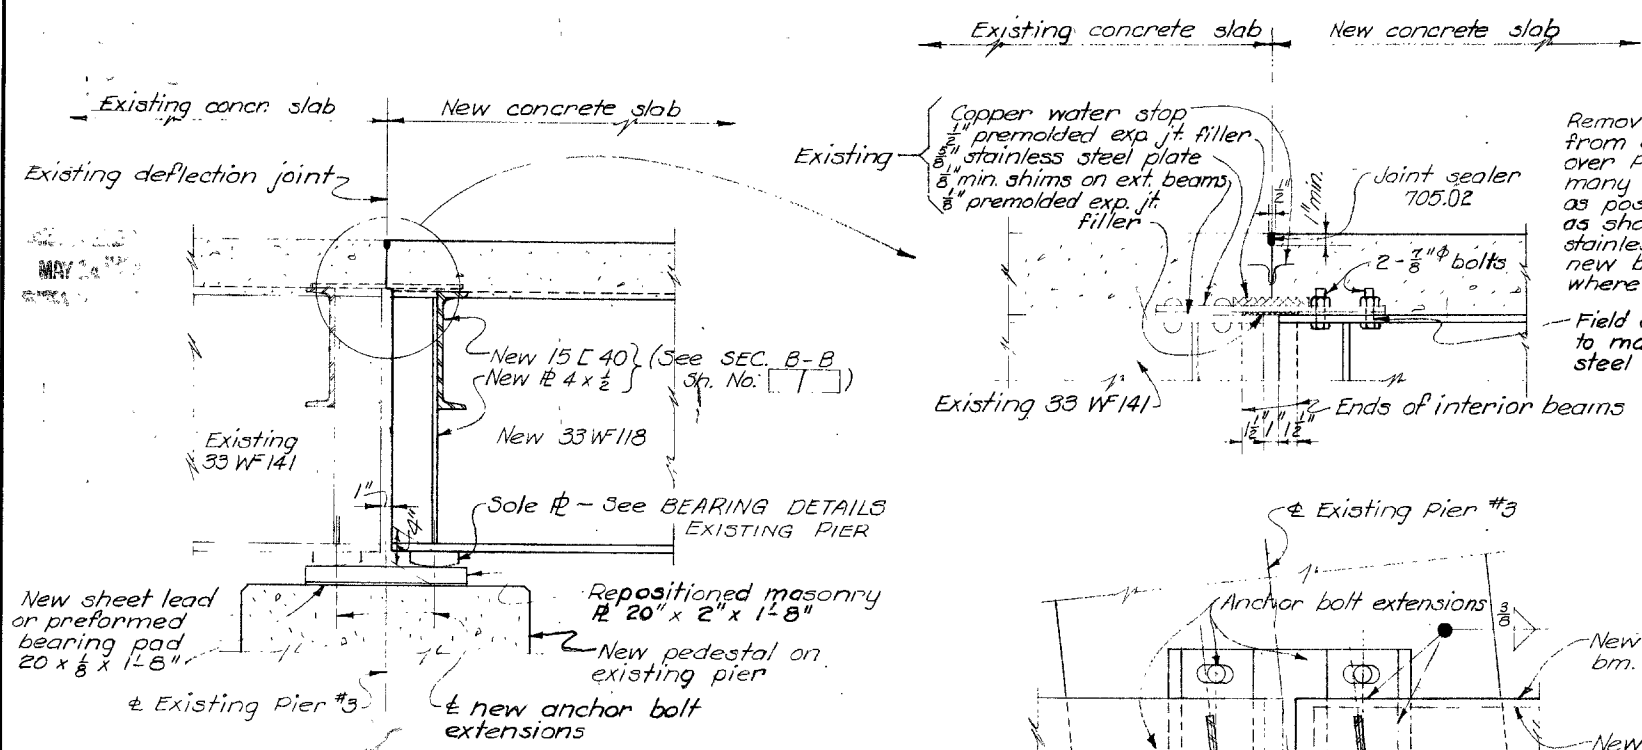 Existing concr. slab
New concrete slab
Existing deflection joint
MAY 24
New 15 [ 40 } (See SEC. B-B
New ⅊ 4 x 1/2 } Sh. No. [ / ])
Existing
33 WF 141
New 33 WF 118
1"
4"
Sole ⅊ - See BEARING DETAILS
EXISTING PIER
New sheet lead
or preformed
bearing pad
20 x 1/8 x 1'-8"
Repositioned masonry
⅊ 20" x 2" x 1'-8"
New pedestal on
existing pier
℄ Existing Pier #3
℄ new anchor bolt
extensions
Existing concrete slab
New concrete slab
Existing
Copper water stop
1/2" premolded exp. jt. filler
5/8" stainless steel plate
1/8" min. shims on ext. beams
1/8" premolded exp. jt.
filler
1/2"
1" min.
Joint sealer
705.02
2 - 7/8" ϕ bolts
Remov
from
over P
many
as pos
as sho
stainles
new b
where
Field
to ma
steel
Existing 33 WF 141
Ends of interior beams
1 1/2" 1" 1 1/2"
℄ Existing Pier #3
Anchor bolt extensions
3/8
New
bm.
New